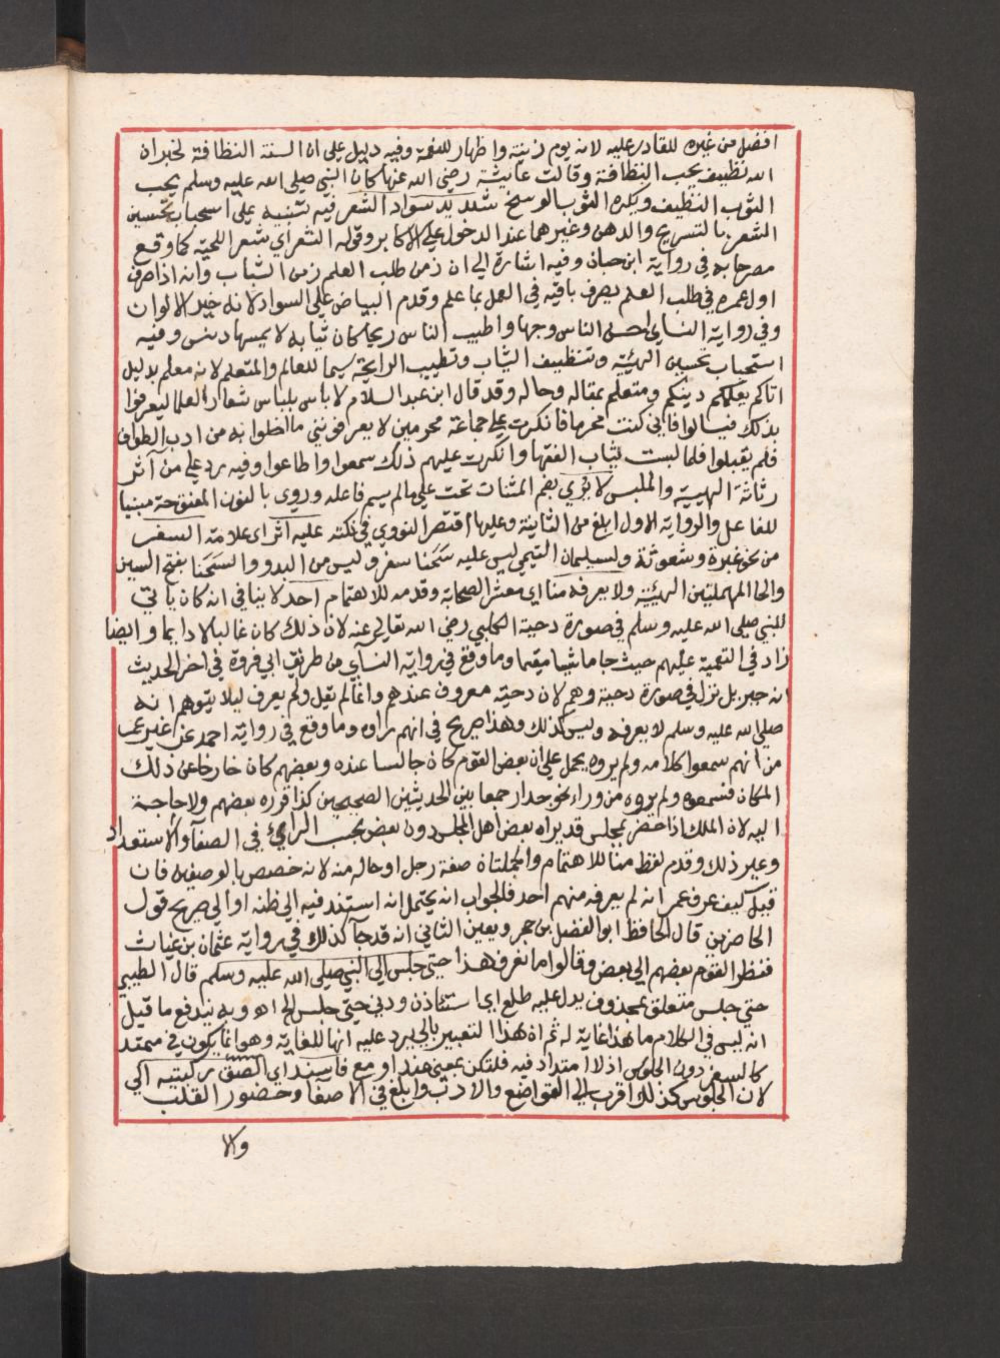 افضل من غيره للقادر عليه لانه يوم زينة واظهار للنعمة وفيه دليل على ان السنة النظافة لخبر ان
الله نظيف يحب النظافة وقالت عايشة رضي الله عنها كان النبي صلى الله عليه وسلم يحب
الثوب النظيف ويكره الثوب الوسخ شديد سواد الشعر فيه تنبيه على استحباب تحسين
الشعر بالتسريح والدهن وغيرهما عند الدخول على الاكابر وقوله الشعر اي شعر اللحية كما وقع
مصرحا به في رواية ابن حبان وفيه اشارة الى ان زمن طلب العلم زمن الشباب وانه اذا صرف
اول عمره في طلب العلم يصرف باقيه في العمل بما علم وقدم البياض على السواد لانه خير الالوان
وفي رواية النساي احسن الناس وجها واطيب الناس ريحا كان ثيابه لا يمسها دنس وفيه
استحباب تحسين الهيئة وتنظيف الثياب وتطييب الرايحة سيما للعالم والمتعلم لانه معلم بدليل
اتاكم يعلمكم دينكم ومتعلم بمقاله وحاله وقد قال ابن عبد السلام لا باس بلباس شعار العلما ليعرفوا
بذلك فيسالوا فاني كنت محرما فانكرت على جماعة محرمين لا يعرفونني ما اخلوا به من ادب الطواف
فلم يقبلوا فلما لبست ثياب الفقها وانكرت عليهم ذلك سمعوا واطاعوا وفيه رد على من آثر
رثاثة الهيبة والملبس لا يرى بضم المثناة تحت على ما لم يسم فاعله وروي بالنون المفتوحة مبنيا
للفاعل والرواية الاول ابلغ من الثانية وعليها اقتصر النووي في نكته عليه اثر اي علامة السفر
من نحو غبرة وشعوثة ولسليمان التيمي ليس عليه سَحَنا سفر وليس من البدو والسحَنا بفتح السين
والحا المهملتين الهيئة ولا يعرفه منا اي معشر الصحابة وقدمه للاهتمام احد لا ينافي انه كان ياتي
للنبي صلى الله عليه وسلم في صورة دحية الكلبي رضي الله تعالى عنه لان ذلك كان غالبا لا دايما وايضا
زاد في التعمية عليهم حيث جا ماشيا مقيما وما وقع في رواية النسآي من طريق ابي فروة في اخر الحديث
انه جبريل نزل في صورة دحية وهم لان دحية معروف عندهم وانما لم يقل ولم يعرف ليلا يتوهم انه
صلى الله عليه وسلم لا يعرفه وليس كذلك وهذا صريح في انهم راوه وما وقع في رواية احمد عن غير عمر
من انهم سمعوا كلامه ولم يروه يحمل على ان بعض القوم كان جالسا عنده وبعضهم كان خارخا عن ذلك
المكان فسمعوه ولم يروه من وراء نحو جدار جمعا بين الحديثين الصحيحين كذا قرره بعضهم ولا حاجة
اليه لان الملك اذا حضر بمجلس قد يراه بعض اهل المجلس دون بعض بحسب الرآئي في الصفآ والاستعداد
وغير ذلك وقدم لفظ منا للاهتمام والجملتان صفة رجل او حاله منه لانه خصص بالوصفين فان
قيل كيف عرف عمر انه لم يعرفه منهم احد فالجواب انه يحتمل انه استند فيه الى ظنه او الى صريح قول
الحاضرين قال الحافظ ابو الفضل بن حجر ويعين الثاني انه قد جا كذلك في رواية عثمان بن غياث
فنظر القوم بعضهم الى بعض وقالوا ما نعرف هذا حتى جلس الى النبي صلى الله عليه وسلم قال الطيبي
حتى جلس متعلق بمحذوف يدل عليه طلع اي استئاذن ودنى حتى جلس الخ اهـ وبه يندفع ما قيل
انه ليس في الكلام ما هذا غاية له ثم ان هذا التعبير بالى يرد عليه انها للغاية وهو انما يكون في ممتد
كالسفر دون الجلوس اذ لا امتداد فيه فلتكن بمعنى عند او مع فاسند اي الصق ركبتيه الى
لان الجلوس كذلك اقرب الى التواضع والادب وابلغ في الاصغاء وحضور القلب
والا